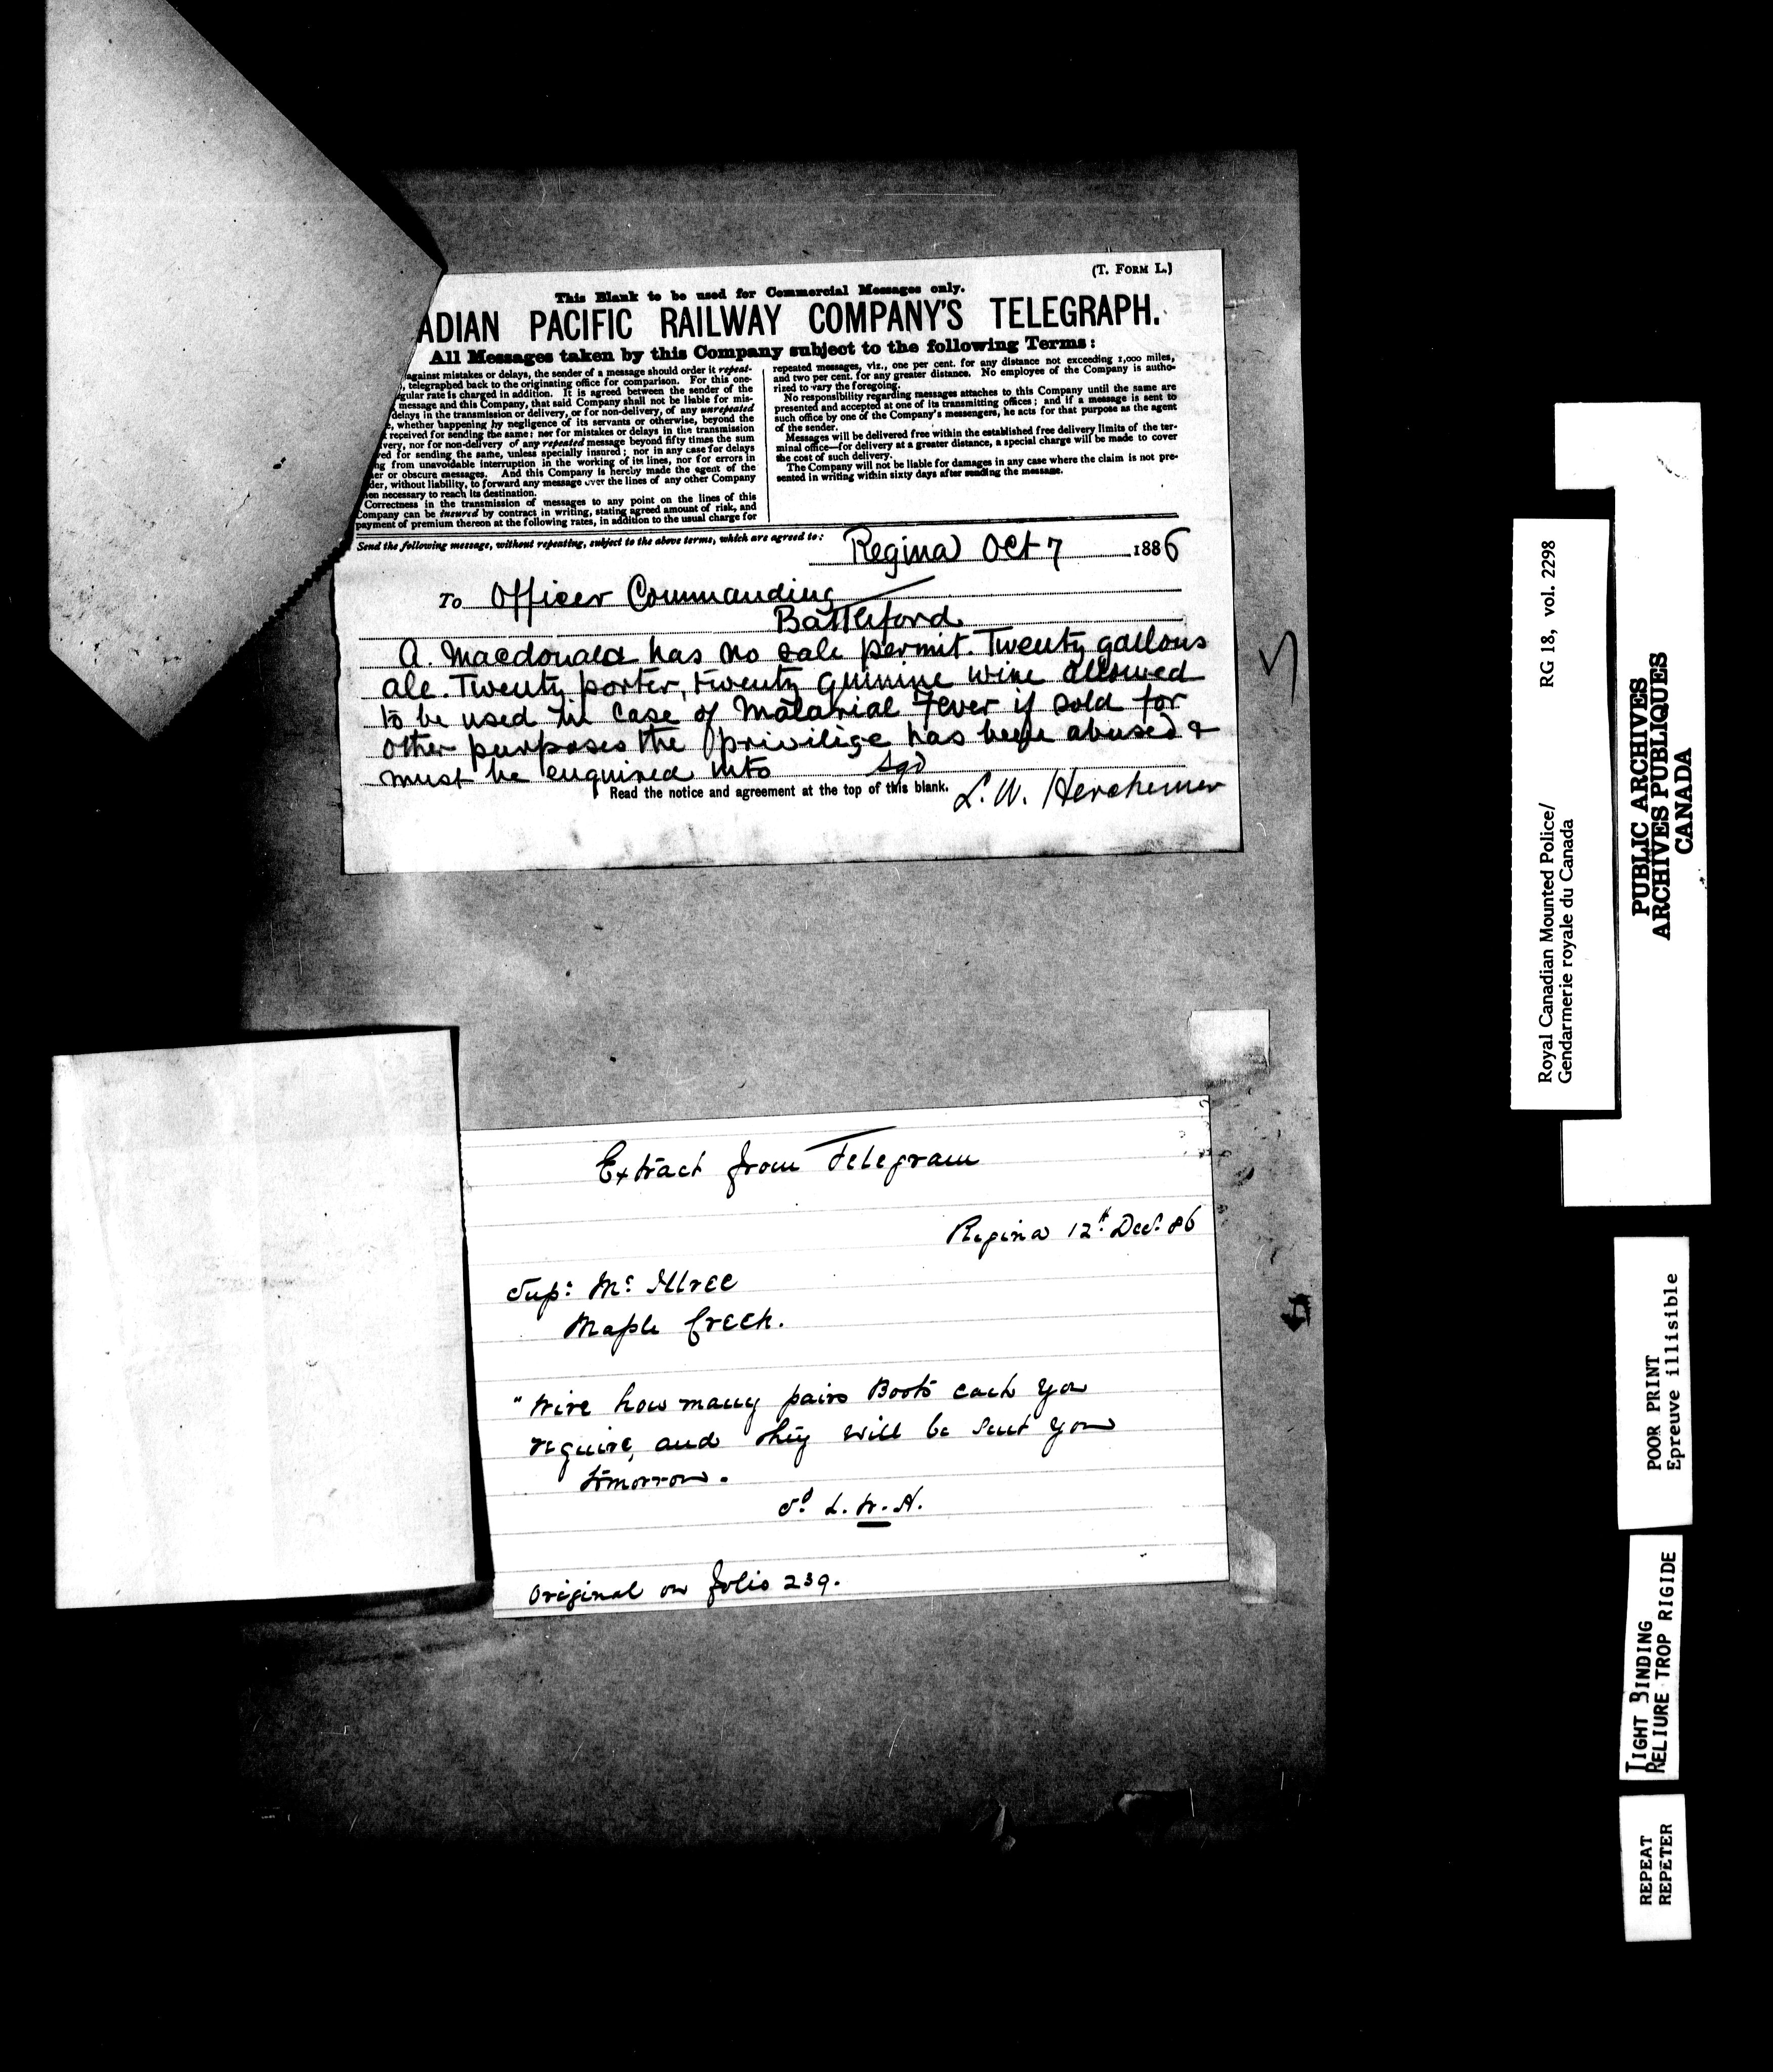 (T. FORM L.)
This Blank to be used for Commercial Messages only.
ADIAN PACIFIC RAILWAY COMPANY'S TELEGRAPH.
All Messages taken by this Company subject to the following Terms:
against mistakes or delays, the sender of a message should order it repeat-
, telegraphed back to the originating office for comparison. For this one-
gular rate is charged in addition. It is agreed between the sender of the
message and this Company, that said Company shall not be liable for mis-
delays in the transmission or delivery, or for non-delivery, of any unrepeated
e, whether happening by negligence of its servants or otherwise, beyond the
t received for sending the same; nor for mistakes or delays in the transmission
ivery, nor for non-delivery of any repeated message beyond fifty times the sum
ved for sending the same, unless specially insured; nor in any case for delays
ng from unavoidable interruption in the working of its lines, nor for errors in
her or obscure messages. And this Company is hereby made the agent of the
der, without liability, to forward any message over the lines of any other Company
hen necessary to reach its destination.
Correctness in the transmission of messages to any point on the lines of this
Company can be insured by contract in writing, stating agreed amount of risk, and
payment of premium thereon at the following rates, in addition to the usual charge for
repeated messages, viz., one per cent. for any distance not exceeding 1,000 miles,
and two per cent. for any greater distance. No employee of the Company is autho-
rized to vary the foregoing.
No responsibility regarding messages attaches to this Company until the same are
presented and accepted at one of its transmitting offices; and if a message is sent to
such office by one of the Company's messengers, he acts for that purpose as the agent
of the sender.
Messages will be delivered free within the established free delivery limits of the ter-
minal office—for delivery at a greater distance, a special charge will be made to cover
the cost of such delivery.
The Company will not be liable for damages in any case where the claim is not pre-
sented in writing within sixty days after sending the message.
Send the following message, without repeating, subject to the above terms, which are agreed to:
Regina Oct 7 1886
To Officer Commanding
Battleford
A. Macdonald has no sale permit. Twenty gallons
ale. Twenty porter, twenty quinine wine allowed
to be used in case of Malarial Fever if sold for
other purposes the privilige has been abused &
must be enquired into Sgd
Read the notice and agreement at the top of this blank.
L. W. Herchemer
Extract from Telegram
Regina 12th Decr 86
Sup: Mc Illree
Maple Creek.
"Wire how many pairs Boots each you
require, and they will be sent you
tomorrow.
Sd L. W. H.
Original on folio 239.
Royal Canadian Mounted Police/ RG 18, vol. 2298
Gendarmerie royale du Canada
PUBLIC ARCHIVES
ARCHIVES PUBLIQUES
CANADA
POOR PRINT
Epreuve illisible
TIGHT BINDING
RELIURE TROP RIGIDE
REPEAT
REPETER